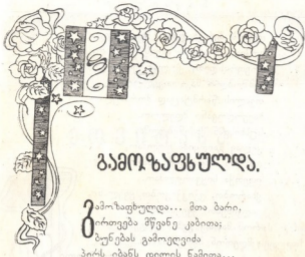 გამოზაფხულდა.
გამოზაფხულდა... მთა ბარი,
ირთვება მწვანე კაბითა;
ბუნებას გამოეღვიძა
პირს იბანს დილის ნამითა...